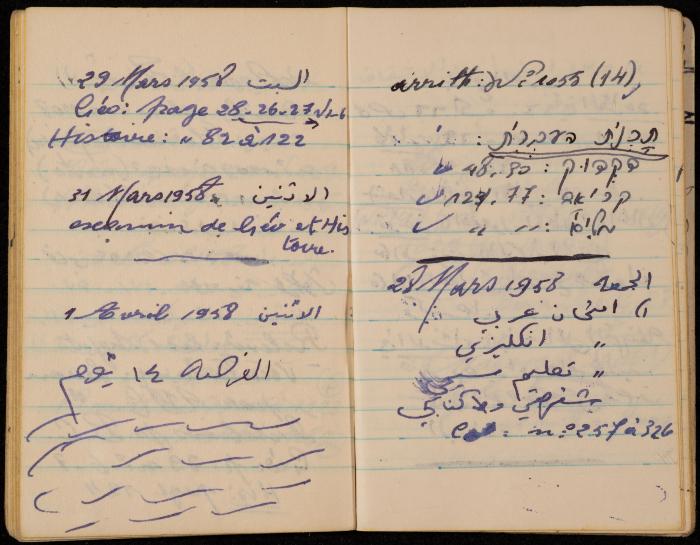 29 Mars 1958 السبت
Géo: page 28-26-27
Histoire: " 82 à 122
31 Mars 1958 الاثنين
examin de Géo et His
toire.
1 Avril 1958 الاثنين
الفرصة ١٤ يوم
arrith: (14)
תכנית העברית:
דקדוק: 48
קריאה: 77
" "
28 Mars 1958 الجمعة
١) امتحان عربي
" انكليزي
" تعليم
شفهي
no 257 à 326